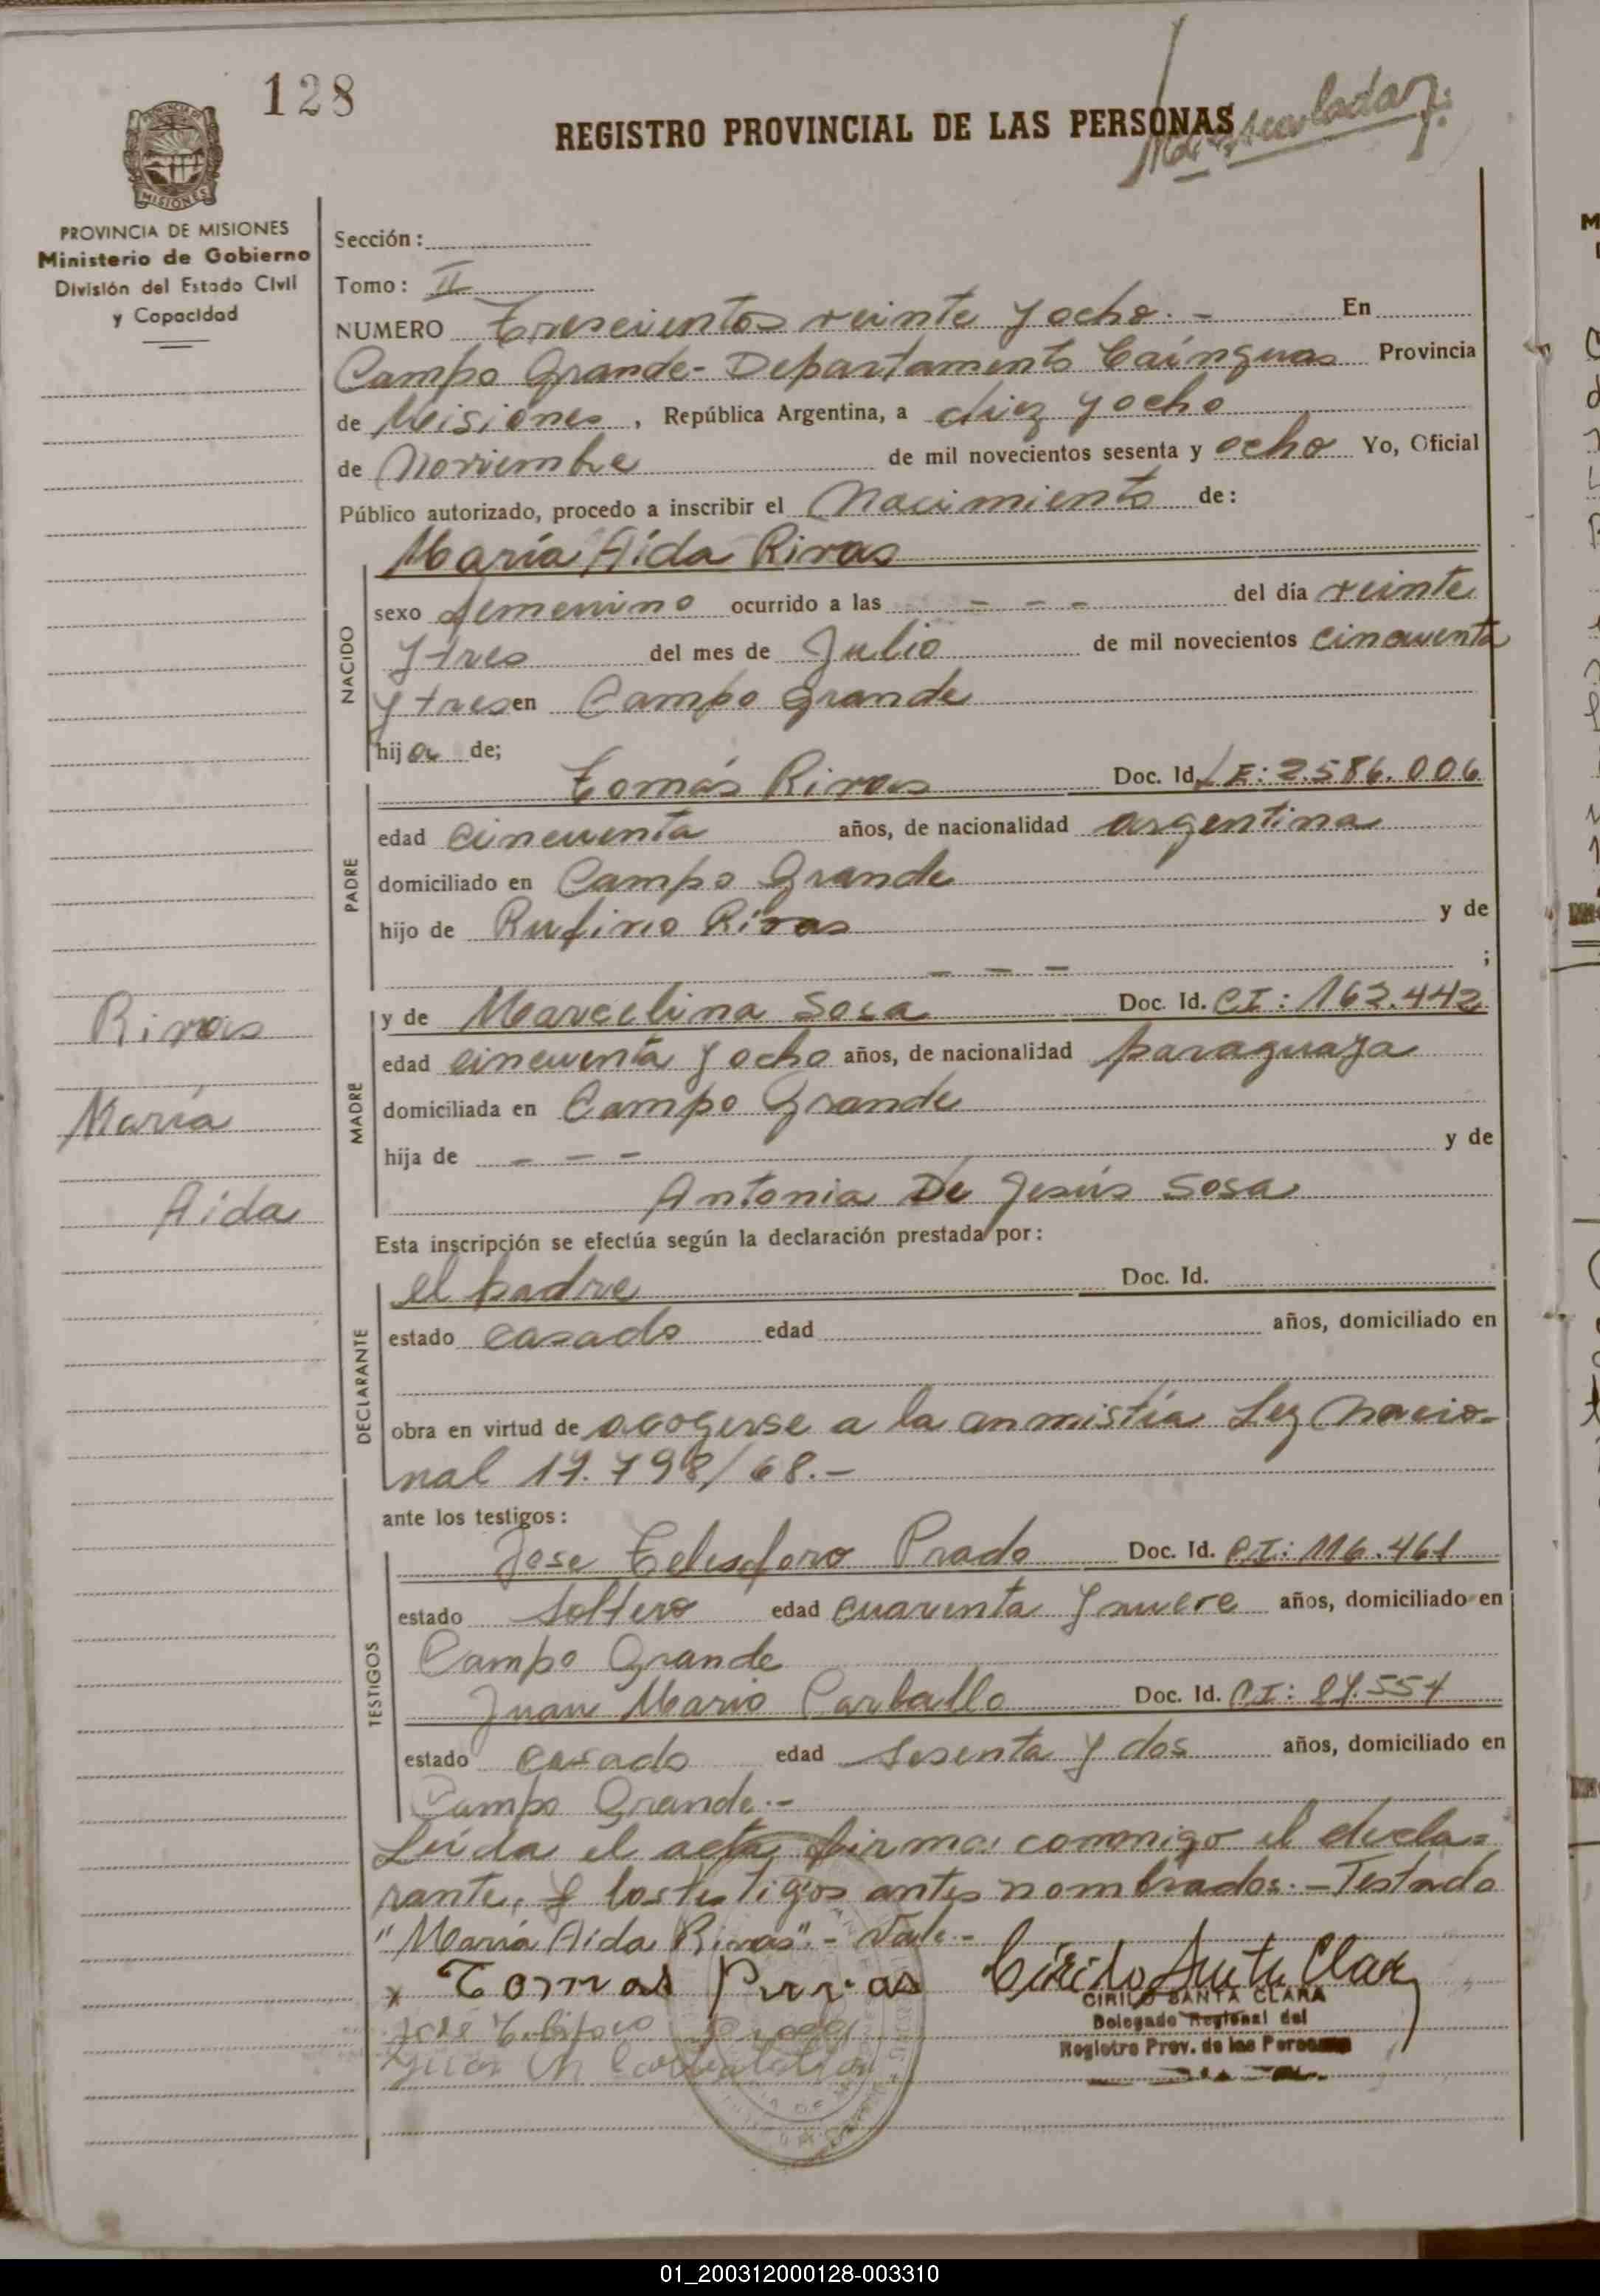 128
REGISTRO PROVINCIAL DE LAS PERSONAS
PROVINCIA DE MISIONES
Ministerio de Gobierno
División del Estado Civil
y Capacidad
Sección:
Tomo: II
NUMERO Trescientos veinte y ocho.- En
Campo Grande- Departamento Cainguas Provincia
de Misiones, República Argentina, a diez y ocho
de Noviembre de mil novecientos sesenta y ocho Yo, Oficial
Público autorizado, procedo a inscribir el Nacimiento de:
María Aida Rivas
NACIDO
sexo femenino ocurrido a las - - - del día veinte
y tres del mes de Julio de mil novecientos cincuenta
y tres en Campo Grande
hija de;
PADRE
Tomás Rivas Doc. Id. LE: 2.586.006
edad cincuenta años, de nacionalidad argentina
domiciliado en Campo Grande
hijo de Rufino Rivas y de
- - - ;
MADRE
y de Marcelina Sosa Doc. Id. CI: 163.442
edad cincuenta y ocho años, de nacionalidad paraguaya
domiciliada en Campo Grande
hija de - - - y de
Antonia De Jesús Sosa
Rivas
María
Aida
Esta inscripción se efectúa según la declaración prestada por:
DECLARANTE
el padre Doc. Id.
estado casado edad años, domiciliado en
obra en virtud de acogerse a la anmistía Ley Nacio-
nal 17.798/68.-
ante los testigos:
TESTIGOS
Jose Telesforo Prado Doc. Id. CI: 116.461
estado soltero edad cuarenta y nueve años, domiciliado en
Campo Grande
Juan Mario Carballo Doc. Id. CI:
estado casado edad sesenta y dos años, domiciliado en
Campo Grande.-
Leída el acta, firma conmigo el decla=
rante, y los testigos antes nombrados.- Testado
"María Aida Rivas".- Vale.-
x Tomas Rivas
CIRILO SANTA CLARA
Delegado Regional del
Registro Prov. de las Personas
01_200312000128-003310